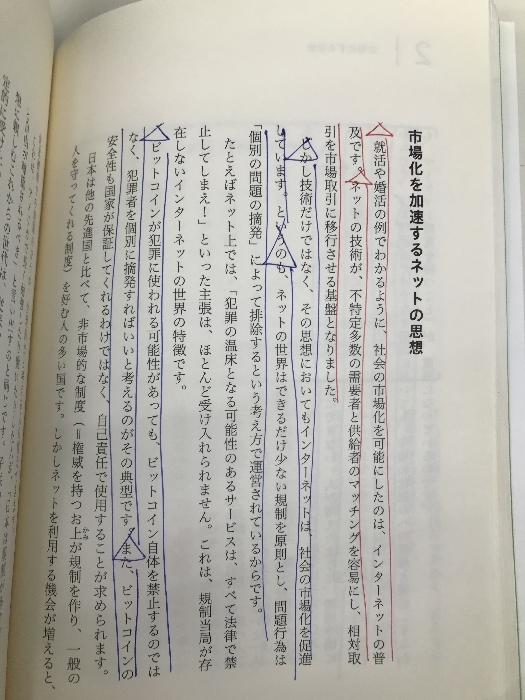 市場化を加速するネットの思想
就活や婚活の例でわかるように、社会の市場化を可能にしたのは、インターネットの普
及です。ネットの技術が、不特定多数の需要者と供給者のマッチングを容易にし、相対取
引を市場取引に移行させる基盤となりました。
しかし技術だけではなく、その思想においてもインターネットは、社会の市場化を促進
しています。というのも、ネットの世界はできるだけ少ない規制を原則とし、問題行為は
「個別の問題の摘発」によって排除するという考え方で運営されているからです。
たとえばネット上では、「犯罪の温床となる可能性のあるサービスは、すべて法律で禁
止してしまえ！」といった主張は、ほとんど受け入れられません。これは、規制当局が存
在しないインターネットの世界の特徴です。
ビットコインが犯罪に使われる可能性があっても、ビットコイン自体を禁止するのでは
なく、犯罪者を個別に摘発すればいいと考えるのがその典型です。また、ビットコインの
安全性も国家が保証してくれるわけではなく、自己責任で使用することが求められます。
日本は他の先進国と比べて、非市場的な制度（＝権威を持つお上が規制を作り、一般の
人を守ってくれる制度）を好む人の多い国です。しかしネットを利用する機会が増えると、